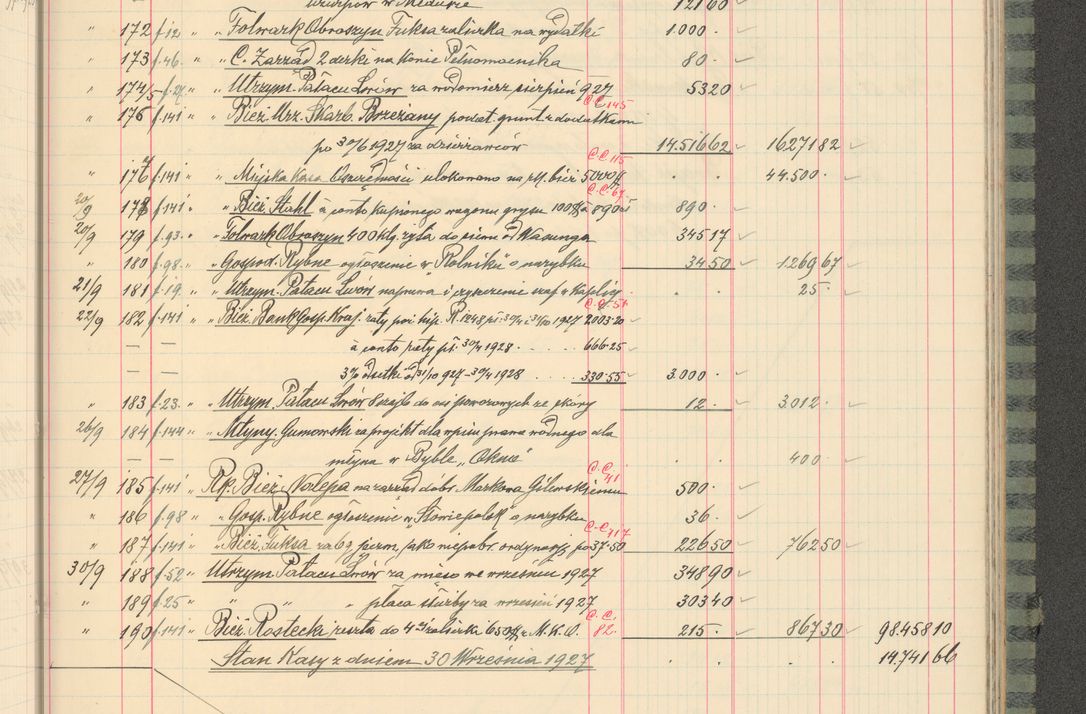 12160
" 172 f.12 " " Folwark Obroszyn Fuksa zaliczka na wydatki 1.000 ·
" 173 f.46. " " C. Zarząd 2 derki na konie 80 ·
" 174 f.27. " " Utrzym. Pałacu Lwów za wodomierz sierpień 927 5320
C.C. 145
" 175 f.141 " " Bież. Urz. Skarb. Brzeżany podat. grunt. z dodatkami
po 30/6 1927 za dzierżawców 14.51662 1627182
C.C. 115
" 176 f.141 " " Miejska Kasa Oszczędności ulokowano na rk. bież. · · 44.500 ·
C.C. 67
20/9 178 f.141 " " Bież. Stahl à conto kupionego wagonu grysu 890 ·
20/9 179 f.93. " " Folwark Obroszyn 400 klg. żyta do siewu od Wasunga 34517
" 180 f.98. " " Gospod. Rybne ogłoszenie w "Rolniku" o narybku 3450 1.26967
21/9 181 f.19. " " Utrzym. Pałacu Lwów naprawa i czyszczenie szaf w Kaplicy · · 25 ·
22/9 182 f.141 " " Bież. Bank Gosp. Kraj. raty poż. hip. 1927 2003·20
— — à conto raty pł. 30/4 1928 · 666·25
— — 3% odsetki od 31/10 927 – 30/4 1928 330·55 3.000 ·
" 183 f.23. " " Utrzym. Pałacu Lwów do osi powozowych ze skóry 12 · 3012 ·
26/9 184 f.144 " " Młyny. Gumowski za projekt dla wpisu prawa wodnego dla
— — młyna w Byble "Okno" · · 400 ·
C.C. 41
27/9 185 f.141 " Rp. Bież. Nalepa na zarząd dóbr. Markowa Gilewskiemu 500 ·
" 186 f.98 " " Gosp. Rybne ogłoszenie w "Słowie polsk." o narybku 36 ·
C.C. 117
" 187 f.141 " " Bież. Fuksa za 6 q jęczm. jako niepobr. ordynarję po 37·50 22650 76250
30/9 188 f.52 " Utrzym. Pałacu Lwów za mięso we wrześniu 1927 34890
" 189 f.25 " " " " płaca służby za wrzesień 1927 30340
C.C. 82.
" 190 f.141 " Bież. Rostecki reszta do zaliczki 650 215 · 86730 98.45810
Stan Kasy z dniem 30 Września 1927 · · · · 14.74166